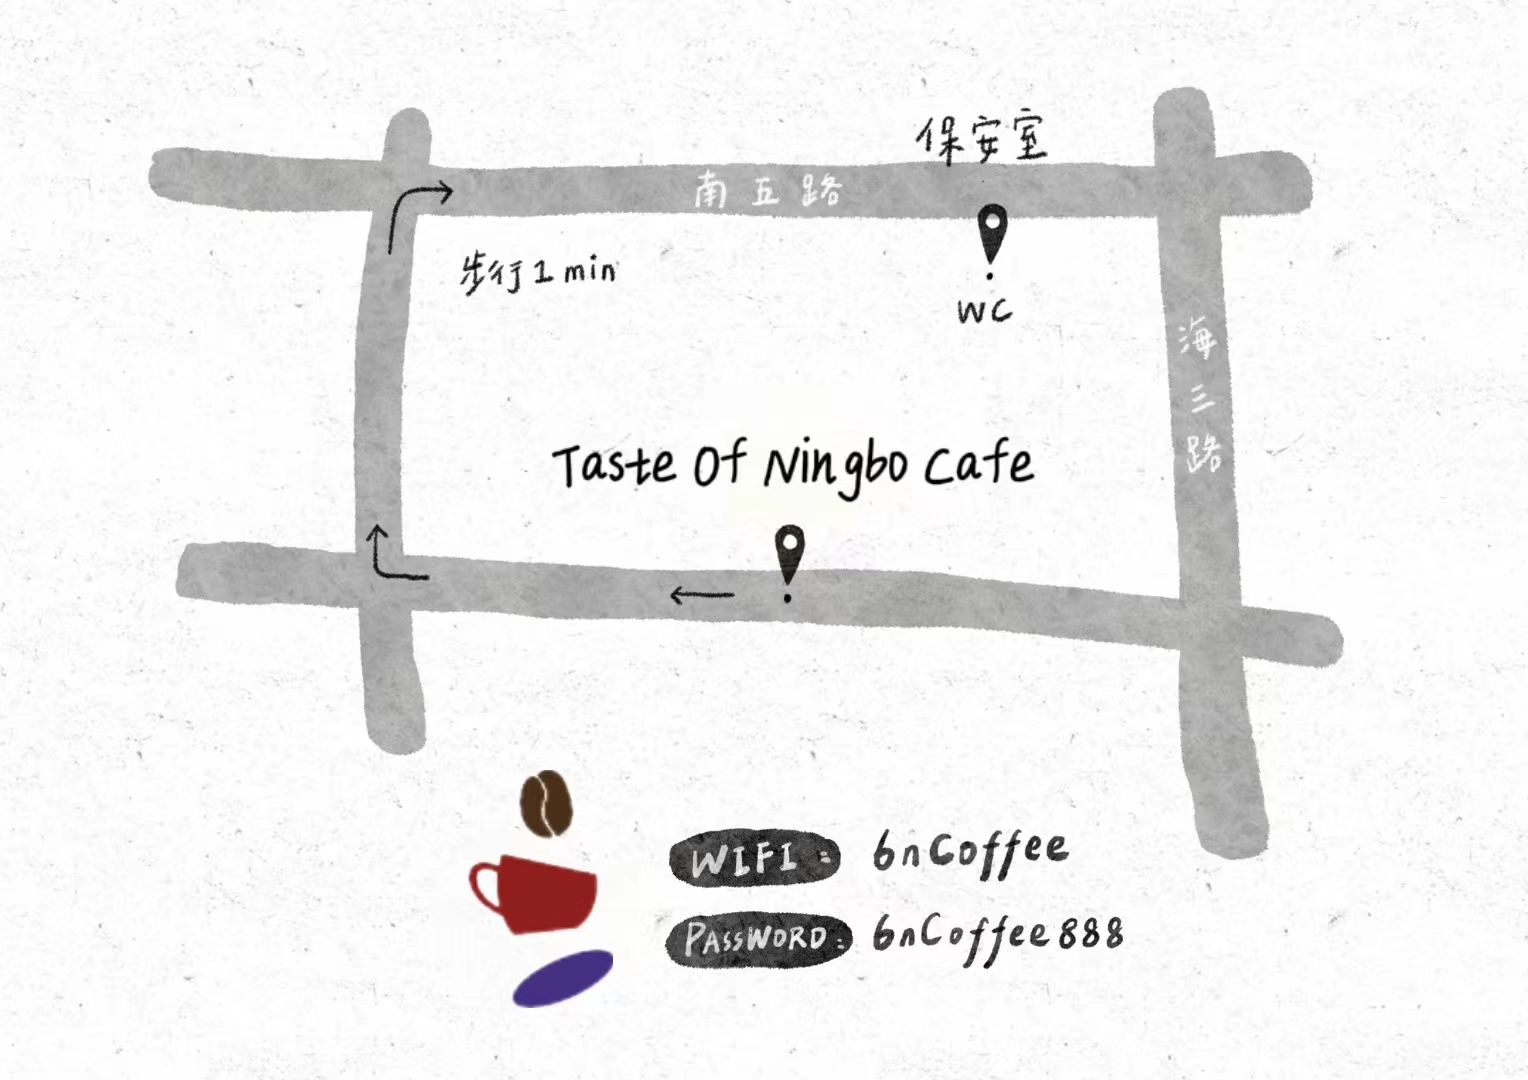 保安室
南五路
步行1min
WC
海三路
Taste Of Ningbo Cafe
WIFI: 6nCoffee
PASSWORD: 6nCoffee888